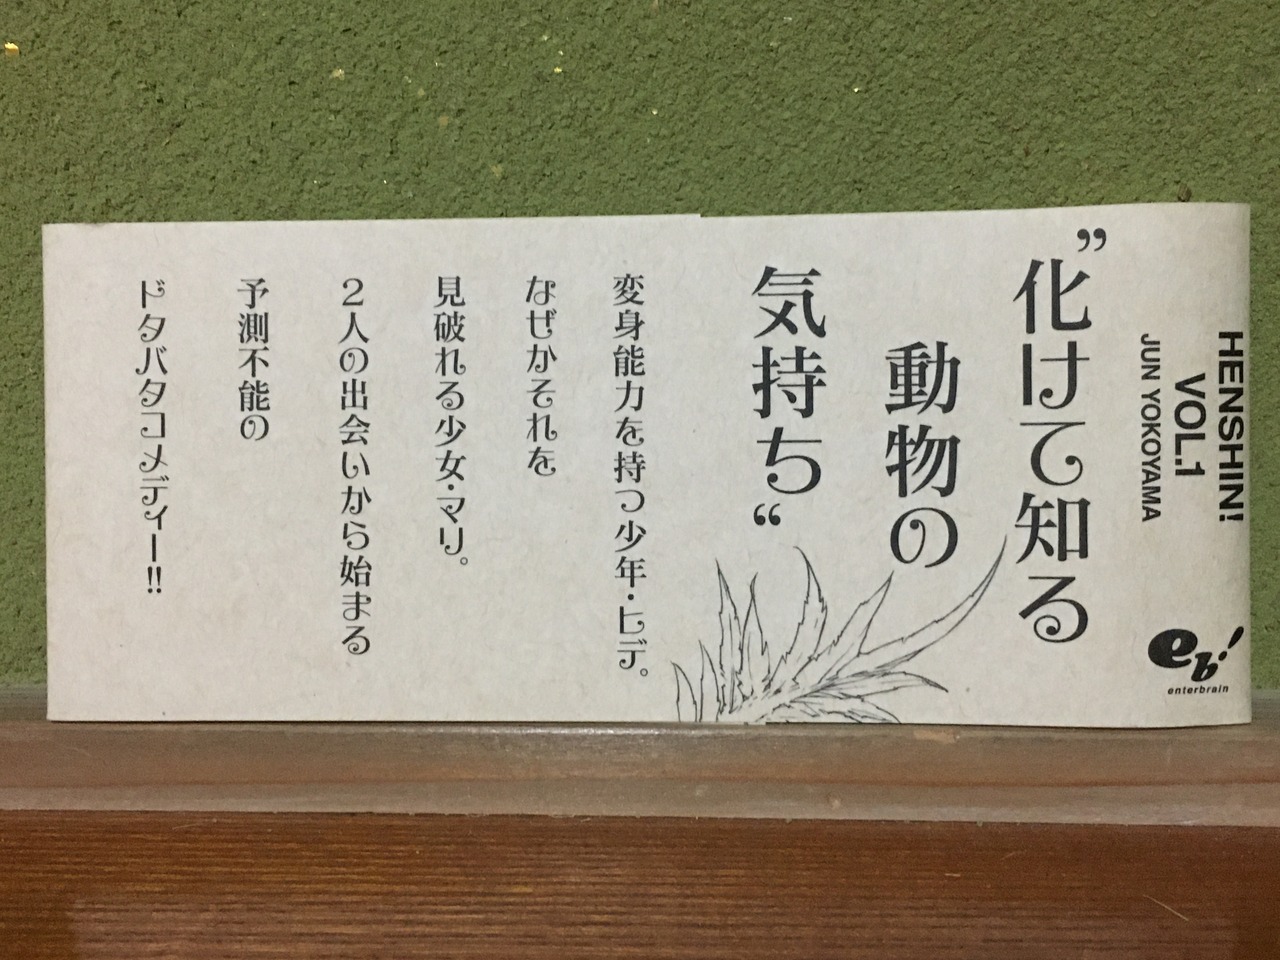 HENSHIN!
VOL.1
JUN YOKOYAMA
eb!
enterbrain
”化けて知る
動物の
気持ち“
変身能力を持つ少年・ヒデ。
なぜかそれを
見破れる少女・マリ。
2人の出会いから始まる
予測不能の
ドタバタコメディー!!